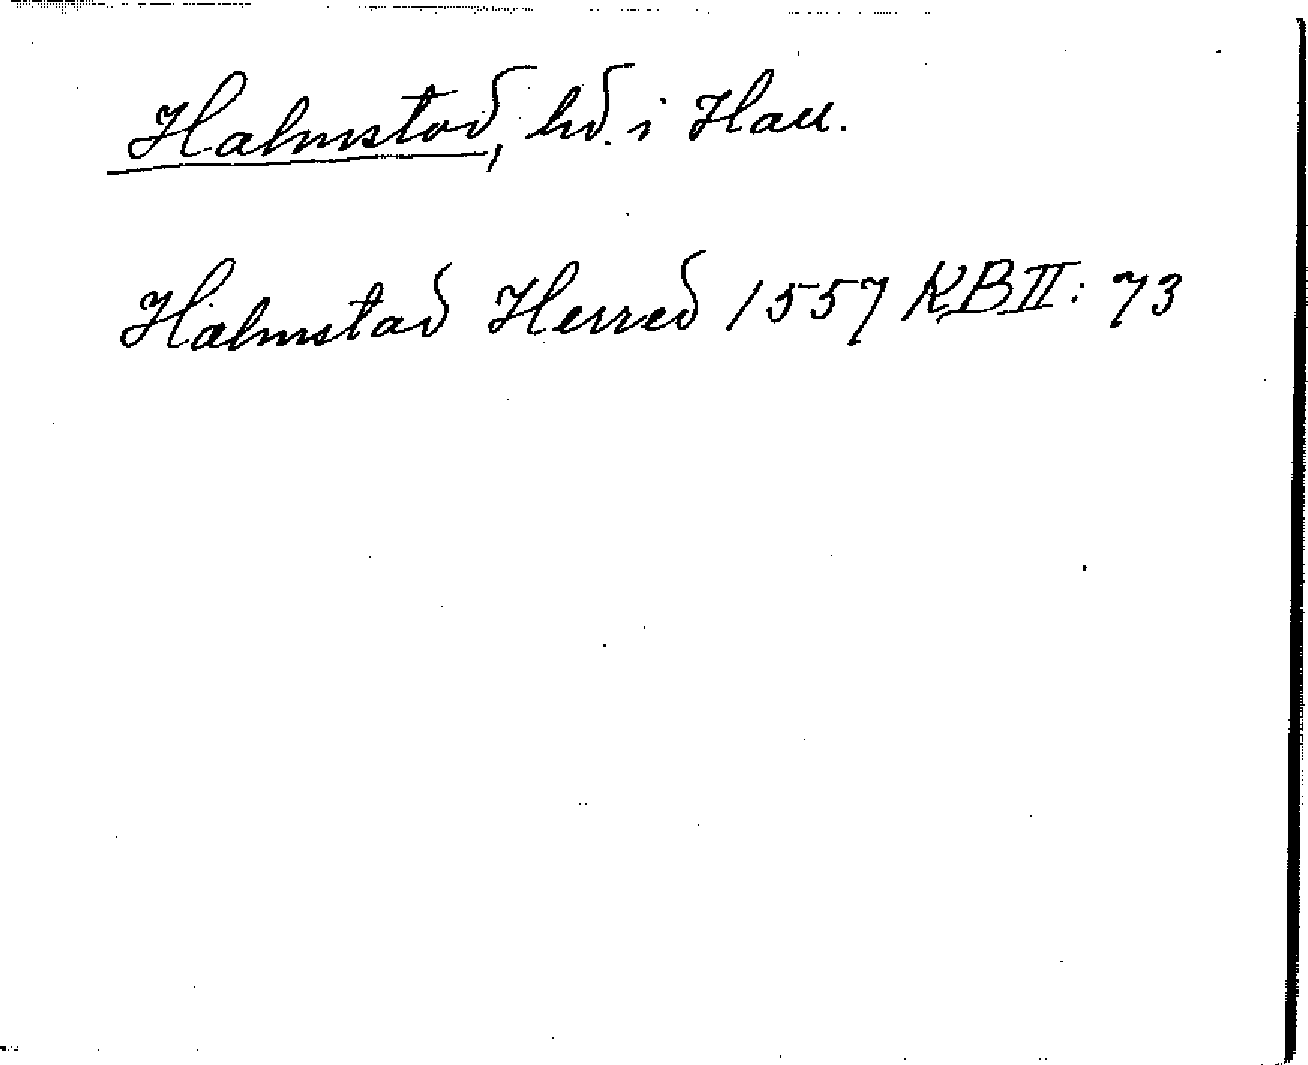 Halmstad, hd. i Hall.
Halmstad Herred 1557 KB II: 73